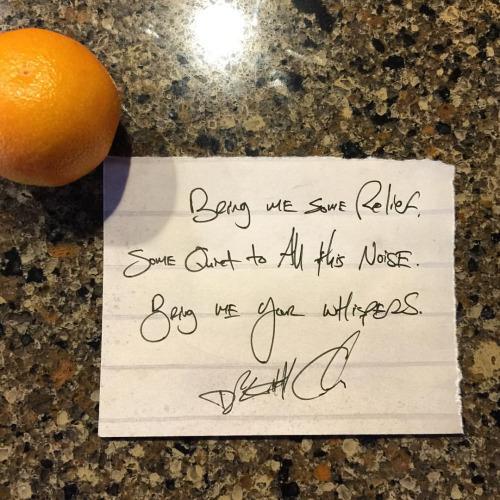 Bring me some Relief.
Some Quiet to All this Noise.
Bring me your whispers.